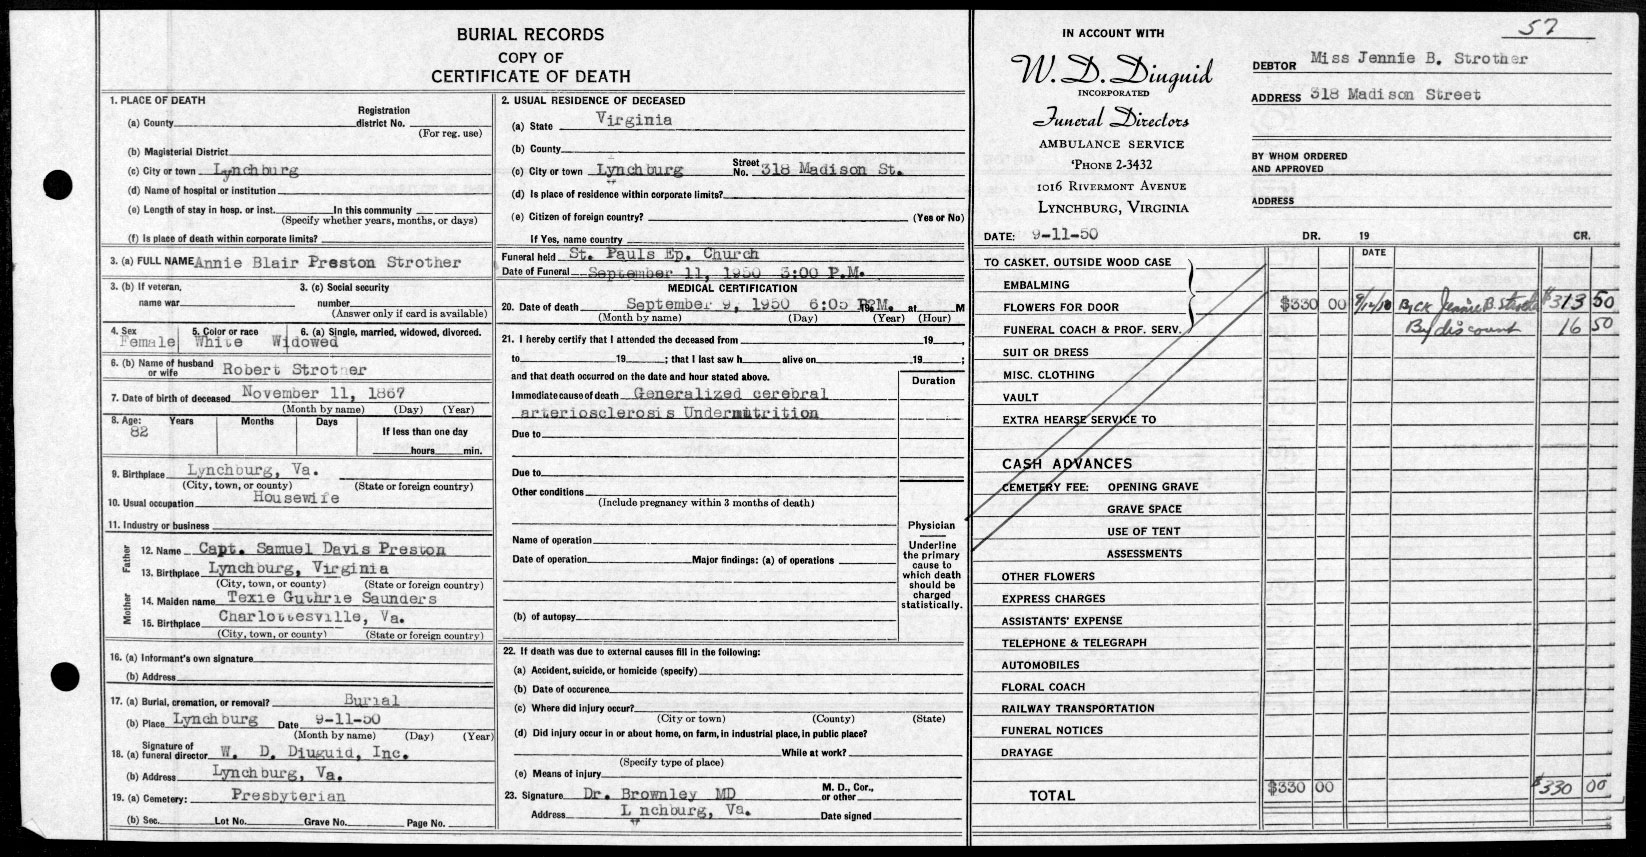 57
BURIAL RECORDS
COPY OF
CERTIFICATE OF DEATH
1. PLACE OF DEATH
Registration
(a) County district No.
(For reg. use)
(b) Magisterial District
(c) City or town Lynchburg
(d) Name of hospital or institution
(e) Length of stay in hosp. or inst. In this community
(Specify whether years, months, or days)
(f) Is place of death within corporate limits?
3. (a) FULL NAME Annie Blair Preston Strother
3. (b) If veteran, 3. (c) Social security
name war number
(Answer only if card is available)
4. Sex 5. Color or race 6. (a) Single, married, widowed, divorced.
Female White Widowed
6. (b) Name of husband
or wife Robert Strother
7. Date of birth of deceased November 11, 1867
(Month by name) (Day) (Year)
8. Age: Years Months Days If less than one day
82
hours min.
9. Birthplace Lynchburg, Va.
(City, town, or county) (State or foreign country)
10. Usual occupation Housewife
11. Industry or business
Father
12. Name Capt. Samuel Davis Preston
13. Birthplace Lynchburg, Virginia
(City, town, or county) (State or foreign country)
Mother
14. Maiden name Texie Guthrie Saunders
15. Birthplace Charlottesville, Va.
(City, town, or county) (State or foreign country)
16. (a) Informant's own signature
(b) Address
17. (a) Burial, cremation, or removal? Burial
(b) Place Lynchburg Date 9-11-50
(Month by name) (Day) (Year)
Signature of
18. (a) funeral director W. D. Diuguid, Inc.
(b) Address Lynchburg, Va.
19. (a) Cemetery: Presbyterian
(b) Sec. Lot No. Grave No. Page No.
2. USUAL RESIDENCE OF DECEASED
(a) State Virginia
(b) County
(c) City or town Lynchburg Street No. 318 Madison St.
(d) Is place of residence within corporate limits?
(e) Citizen of foreign country? (Yes or No)
If Yes, name country
Funeral held St. Pauls Ep. Church
Date of Funeral September 11, 1950 3:00 P.M.
MEDICAL CERTIFICATION
20. Date of death September 9, 1950 6:05 P.M. at M
(Month by name) (Day) (Year) (Hour)
21. I hereby certify that I attended the deceased from 19
to 19 ; that I last saw h alive on 19 ;
and that death occurred on the date and hour stated above.
Duration
Immediate cause of death Generalized cerebral
arteriosclerosis Undernutrition
Due to
Due to
Other conditions
(Include pregnancy within 3 months of death)
Name of operation
Date of operation Major findings: (a) of operations
(b) of autopsy
Physician
Underline
the primary
cause to
which death
should be
charged
statistically.
22. If death was due to external causes fill in the following:
(a) Accident, suicide, or homicide (specify)
(b) Date of occurence
(c) Where did injury occur?
(City or town) (County) (State)
(d) Did injury occur in or about home, on farm, in industrial place, in public place?
While at work?
(Specify type of place)
(e) Means of injury
23. Signature Dr. Brownley MD M. D., Cor., or other
Address Lynchburg, Va. Date signed
IN ACCOUNT WITH
W. D. Diuguid
INCORPORATED
Funeral Directors
AMBULANCE SERVICE
'PHONE 2-3432
1016 RIVERMONT AVENUE
LYNCHBURG, VIRGINIA
DEBTOR Miss Jennie B. Strother
ADDRESS 318 Madison Street
BY WHOM ORDERED
AND APPROVED
ADDRESS
DATE: 9-11-50 DR. 19 CR.
DATE
TO CASKET, OUTSIDE WOOD CASE
EMBALMING
FLOWERS FOR DOOR $330 00 9/12/50 By ck Jennie B. Strother $313 50
FUNERAL COACH & PROF. SERV. By discount 16 50
SUIT OR DRESS
MISC. CLOTHING
VAULT
EXTRA HEARSE SERVICE TO
CASH ADVANCES
CEMETERY FEE: OPENING GRAVE
GRAVE SPACE
USE OF TENT
ASSESSMENTS
OTHER FLOWERS
EXPRESS CHARGES
ASSISTANTS' EXPENSE
TELEPHONE & TELEGRAPH
AUTOMOBILES
FLORAL COACH
RAILWAY TRANSPORTATION
FUNERAL NOTICES
DRAYAGE
TOTAL $330 00 $330 00